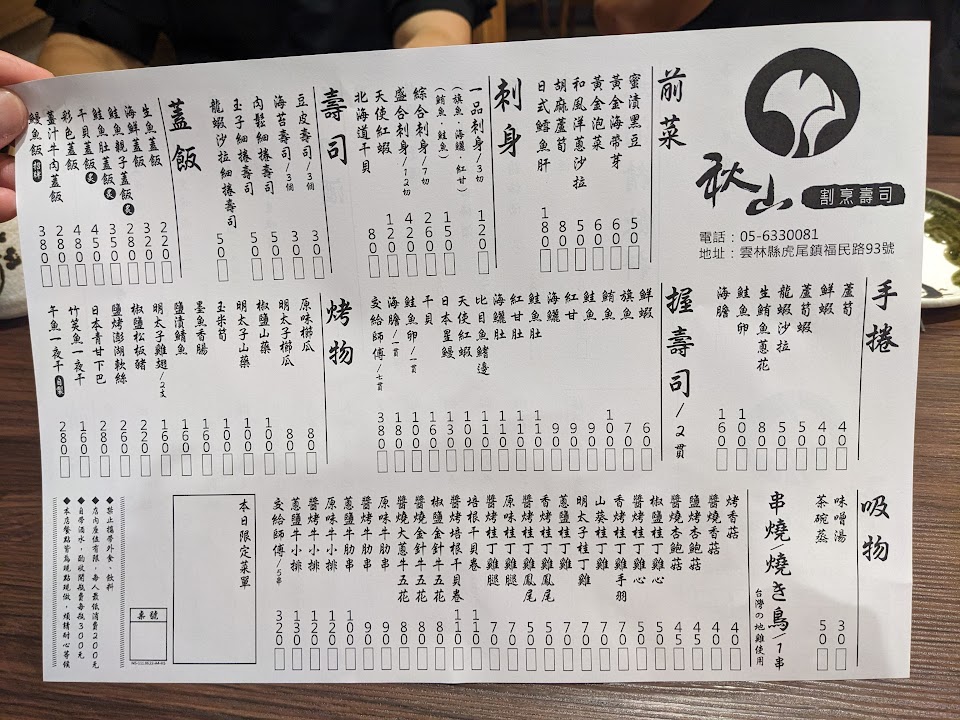 秋山
割烹壽司
電話：05-6330081
地址：雲林縣虎尾鎮福民路93號
前菜
蜜漬黑豆 50
黃金海帶芽 60
黃金泡菜 60
和風洋蔥沙拉 50
胡麻蘆筍 80
日式鱈魚肝 180
刺身
一品刺身/3切 120
（旗魚．海鱺．紅甘）
（鮪魚．鮭魚） 150
綜合刺身/7切 260
盛合刺身/12切 420
天使紅蝦 120
北海道干貝 80
壽司
豆皮壽司/3個 30
海苔壽司/3個 30
肉鬆細捲壽司 50
玉子細捲壽司 50
龍蝦沙拉細捲壽司 50
蓋飯
生魚蓋飯 220
海鮮蓋飯 320
鮭魚親子蓋飯 炙
鮭魚肚蓋飯 炙
干貝蓋飯 炙
彩色蓋飯
薑汁牛肉蓋飯 280
鰻魚飯 380
手捲
蘆筍 40
鮮蝦 40
蘆筍蝦 50
龍蝦沙拉 50
生鮪魚蔥花 80
鮭魚卵 100
海膽 160
握壽司/2貫
鮮蝦 60
旗魚 70
鮪魚 100
鮭魚 90
紅甘 90
海鱺 90
鮭魚肚 110
紅甘肚 110
海鱺肚 110
比目魚鰭邊 100
天使紅蝦 120
日本星鰻 130
干貝 160
鮭魚卵/一貫 100
海膽/一貫 180
交給師傅/七貫 380
烤物
原味櫛瓜 80
明太子櫛瓜 80
椒鹽山藥 100
明太子山藥 100
玉米筍 100
墨魚香腸 160
鹽漬鯖魚 160
明太子雞翅/2支 160
椒鹽松板豬 220
鹽烤澎湖軟絲 260
日本青甘下巴 280
竹筴魚一夜干 160
午魚一夜干 自製 280
吸物
味噌湯 30
茶碗蒸 50
串燒燒き鳥/1串
台灣の地雞使用
烤香菇 40
醬燒香菇 40
鹽烤杏鮑菇 45
醬燒杏鮑菇 45
椒鹽桂丁雞心 50
醬烤桂丁雞心 50
香烤桂丁雞手羽 70
山葵桂丁雞 60
明太子桂丁雞 60
蔥鹽桂丁雞
香烤桂丁雞鳳尾 50
醬烤桂丁雞鳳尾 50
原味桂丁雞腿 70
醬烤桂丁雞腿 70
培根干貝卷 110
醬烤培根干貝卷 110
椒鹽金針牛五花 80
醬燒金針牛五花 80
醬燒大蔥牛五花 80
原味牛肋串 90
醬烤牛肋串 90
蔥鹽牛肋串 100
原味牛小排 120
醬烤牛小排 120
蔥鹽牛小排 130
交給師傅/5串 320
本日限定菜單
桌號
◆禁止攜帶外食、飲料
◆店內座位有限，每人最低消費200元
◆自帶酒水，酌收開瓶費每瓶300元
◆本店餐點皆為現點現做，煩請耐心等候